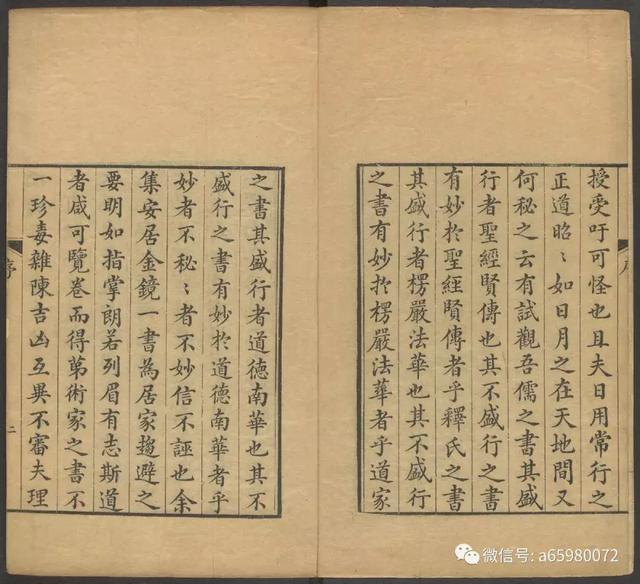 授受吁可怪也且夫日用常行之
正道昭〻如日月之在天地間又
何秘之云有試觀吾儒之書其盛
行者聖經賢傳也其不盛行之書
有妙於聖經賢傳者乎釋氏之書
其盛行者楞嚴法華也其不盛行
之書有妙於楞嚴法華者乎道家
之書其盛行者道德南華也其不
盛行之書有妙於道德南華者乎
妙者不秘〻者不妙信不誣也余
集安居金鏡一書為居家趨避之
要明如指掌朗若列眉有志斯道
者咸可覽卷而得第術家之書不
一珍毒雜陳吉凶互異不審夫理
序
二
微信号: a65980072